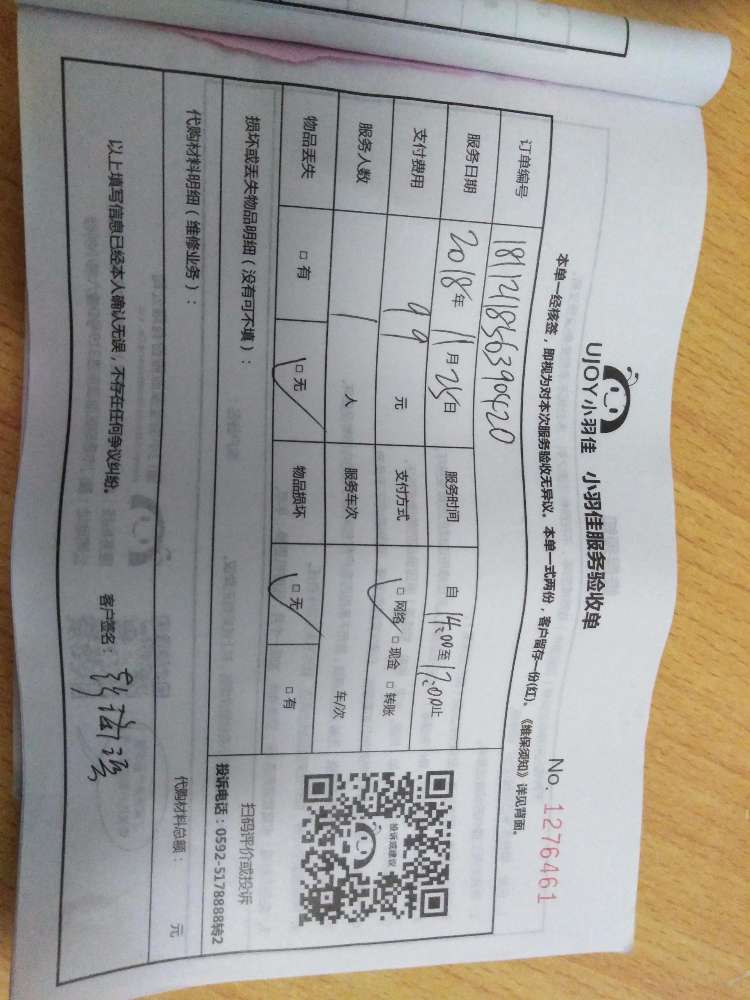 UJOY小羽佳 小羽佳服务验收单
No. 1276461
本单一经核签，即视为对本次服务验收无异议。本单一式两份，客户留存一份(红)。《维保须知》详见背面。
订单编号 181121856390420
服务日期 2018年 11月 25日 服务时间 自 14:00至 17:00止
支付费用 99 元 支付方式 □ 网络 □ 现金 □ 转账
服务人数 1 人 服务车次 车/次
物品丢失 □ 有 □ 无 物品损坏 □ 无 □ 有
投诉或建议
扫码评价或投诉
投诉电话：0592-5178888转2
损坏或丢失物品明细（没有可不填）：
代购材料明细（维修业务）： 代购材料总额： 元
以上填写信息已经本人确认无误，不存在任何争议纠纷。 客户签名：